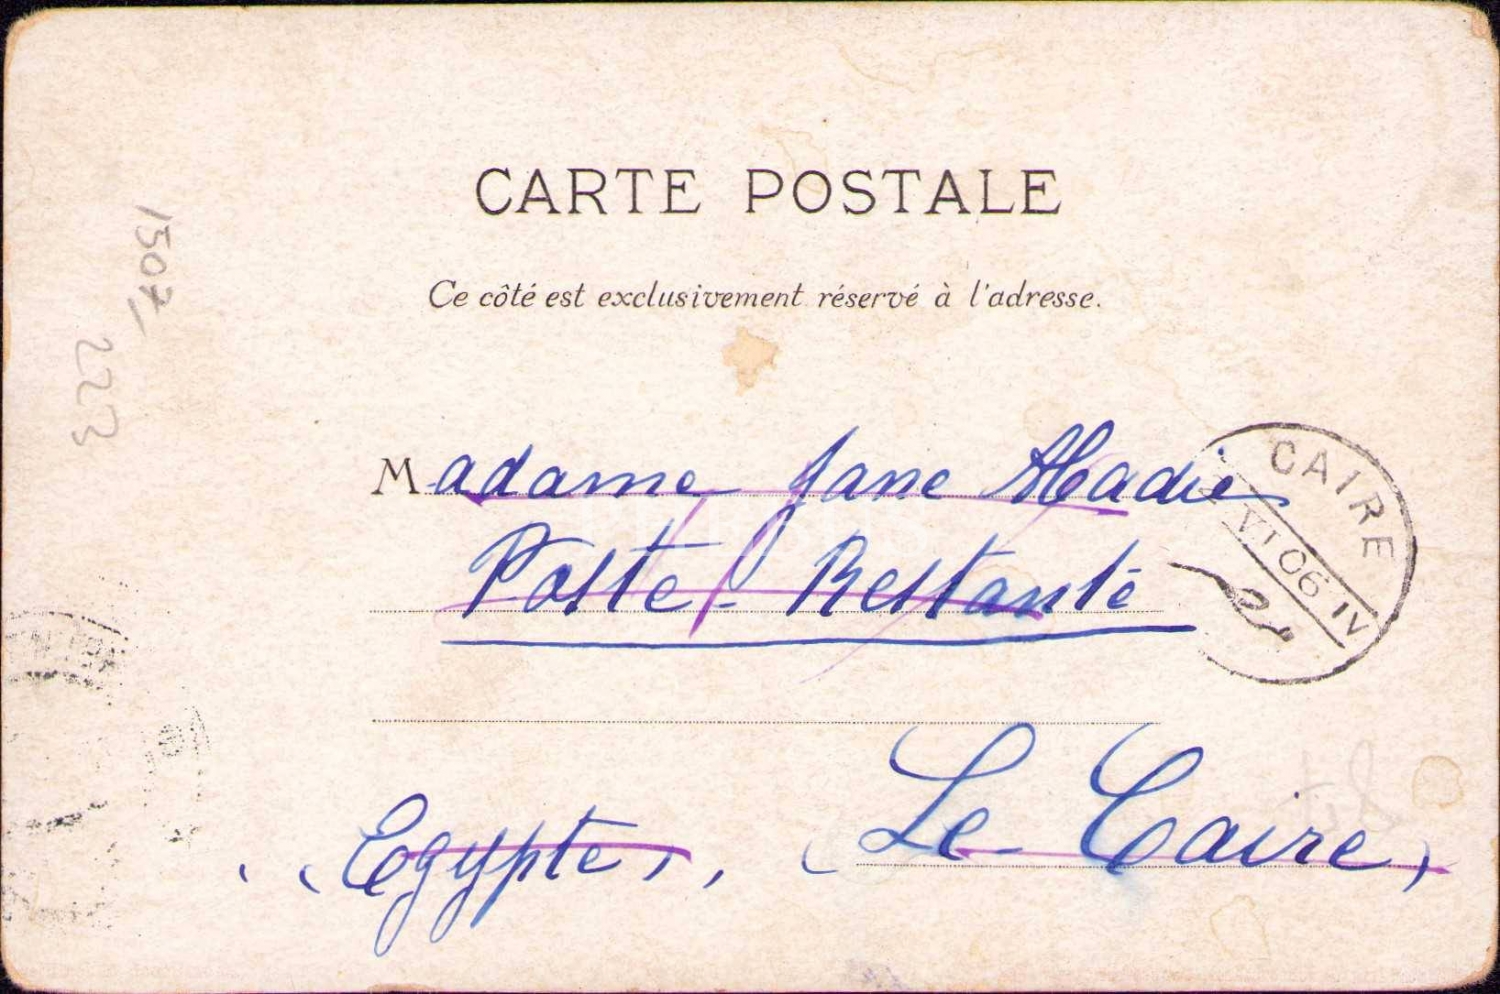 CARTE POSTALE
Ce côté est exclusivement réservé à l'adresse.
Madame Jane Abadie
Poste-Restante
Le Caire,
Egypte,
CAIRE
VI 06 IV
1507
223